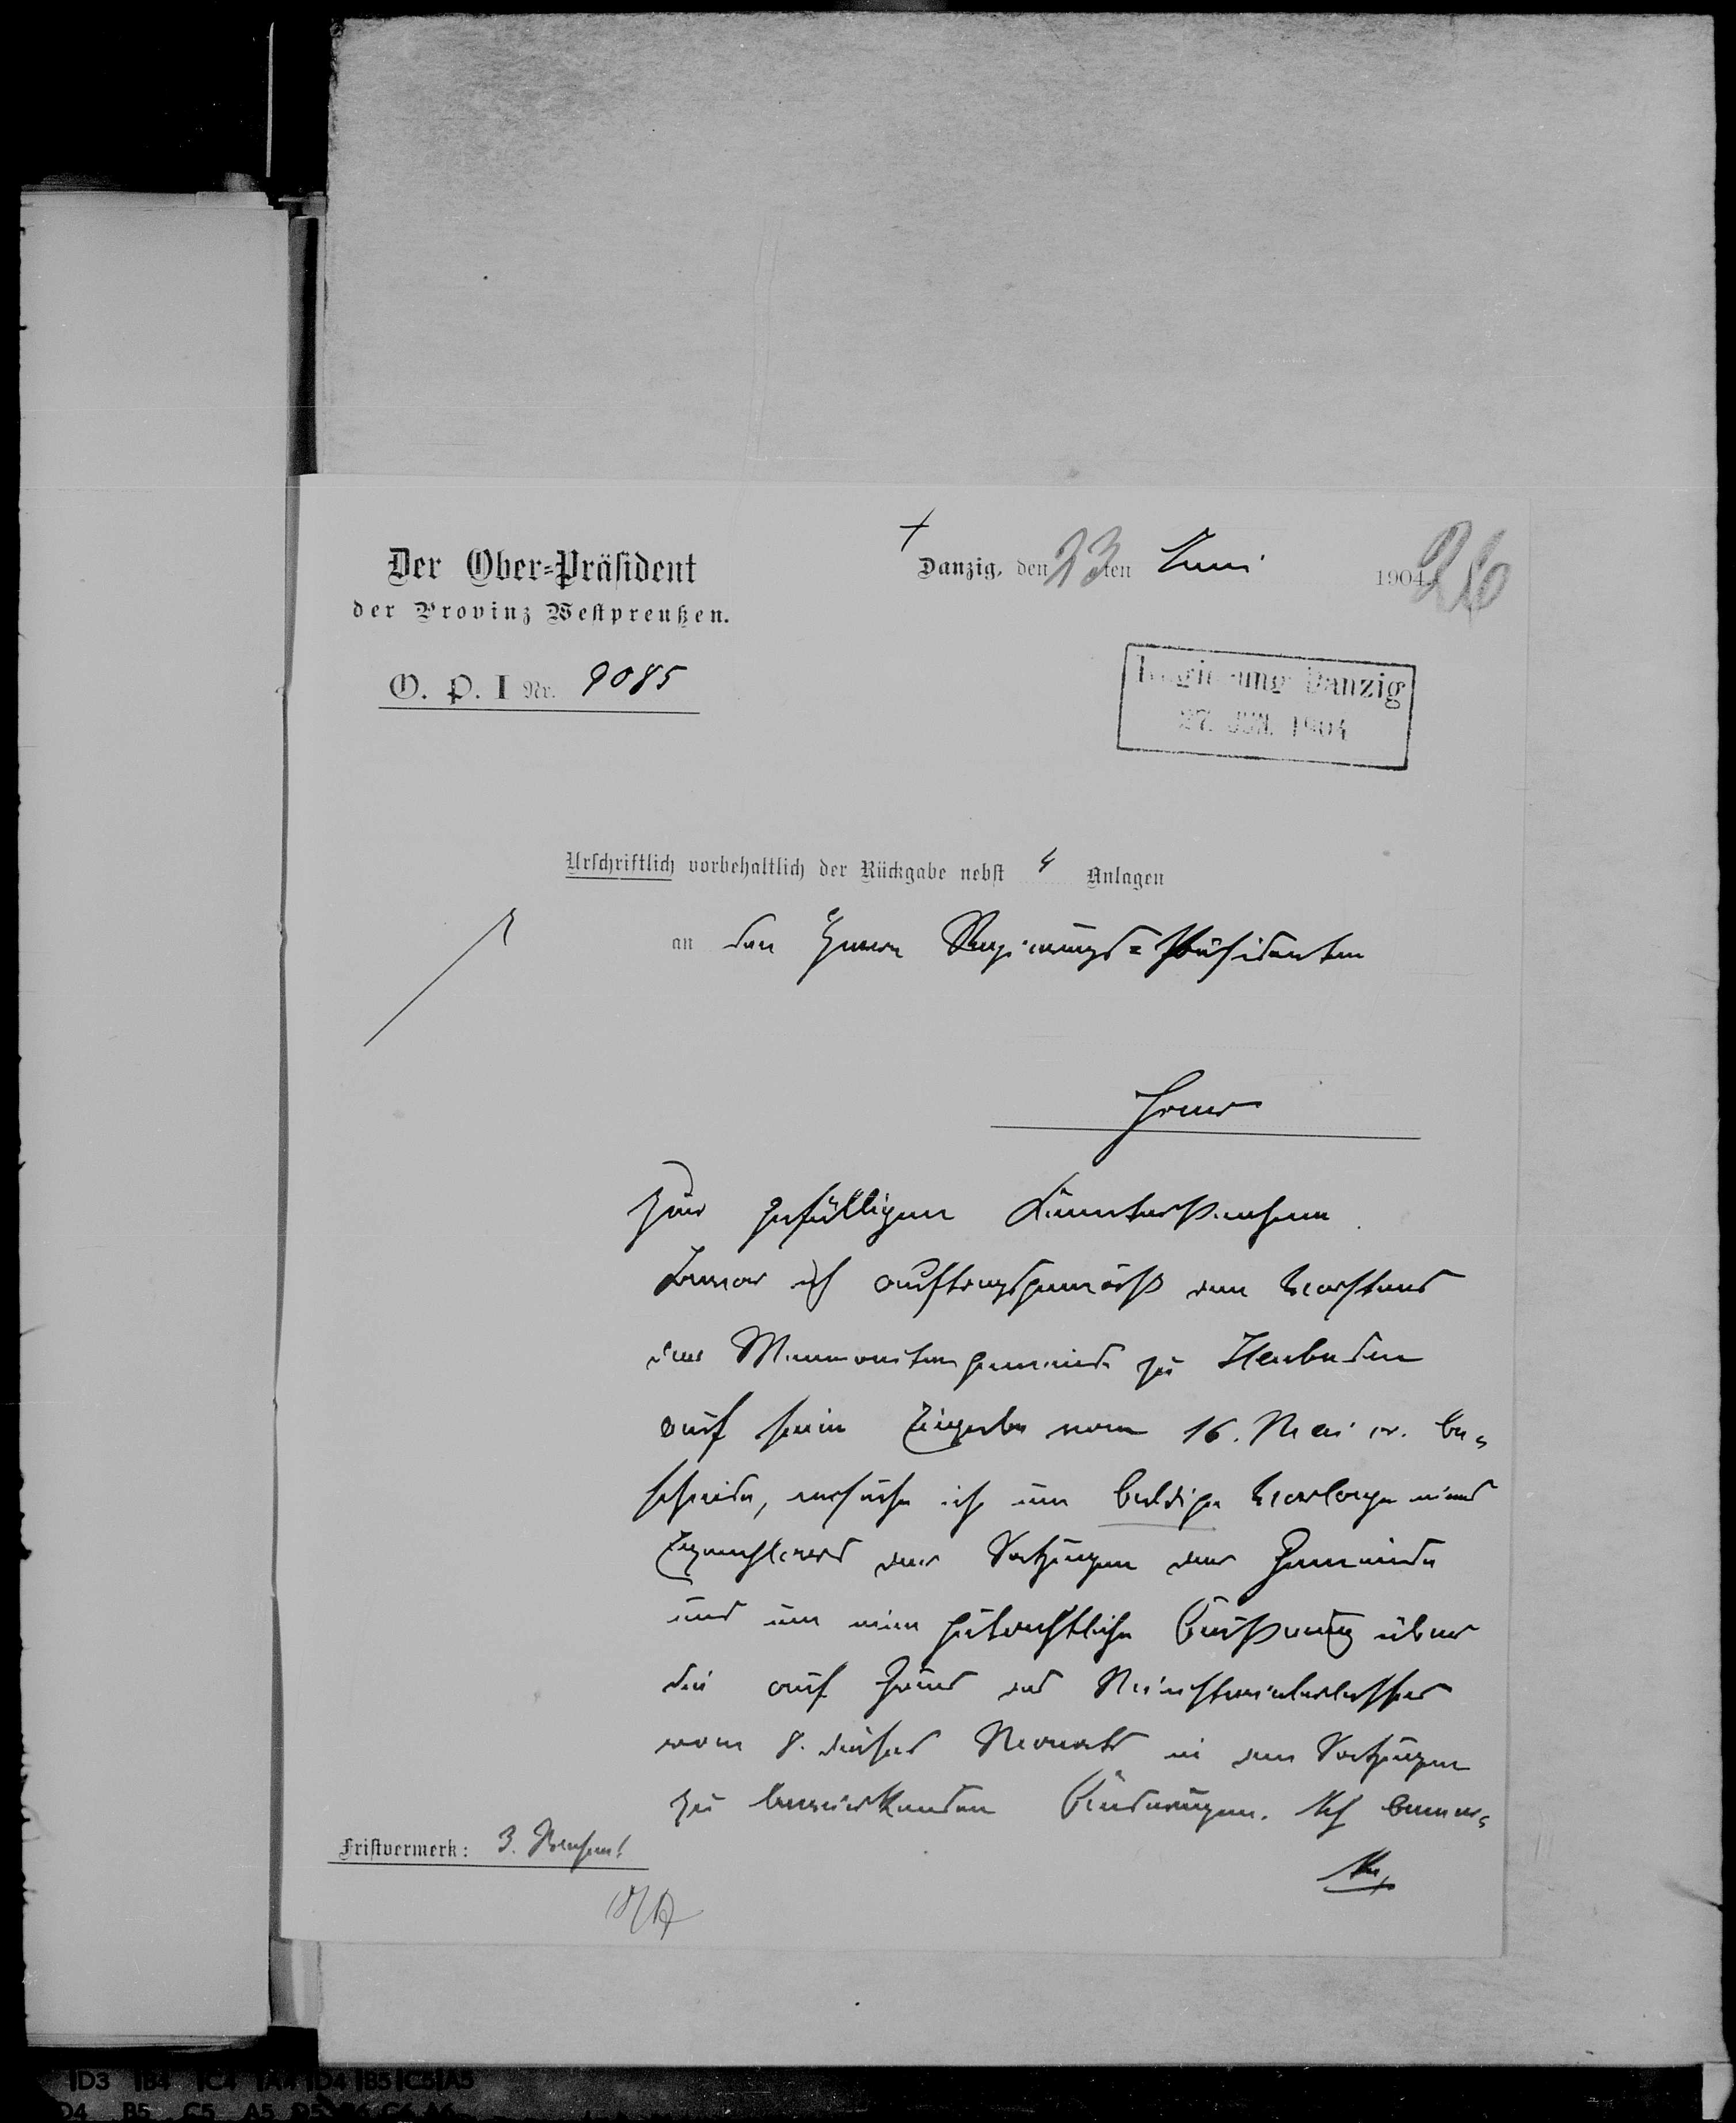 Der Ober-Präsident
der Provinz Westpreußen.
O. P. I Nr. 9085
Danzig, den 23ten Juni 1904.
26
Regierung Danzig
27. JUN. 1904
Urschriftlich vorbehaltlich der Rückgabe nebst 4 Anlagen
an den Herrn Regierungs-Präsidenten
Hier
zur gefälligen Kenntnißnahme.
Bevor ich auftragsgemäß den Vorstand
der Mennonitengemeinde zu Heubuden
auf seine Eingabe vom 16. Mai cr. be-
scheide, ersuche ich um baldige Vorlage eines
Exemplares der Satzungen der Gemeinde
und um eine gutachtliche Äußerung über
die auf Grund des Ministerialerlasses
vom 8. dieses Monats in den Satzungen
zu bewirkenden Änderungen. Ich bemer-
Fristvermerk: 3. Wochen!